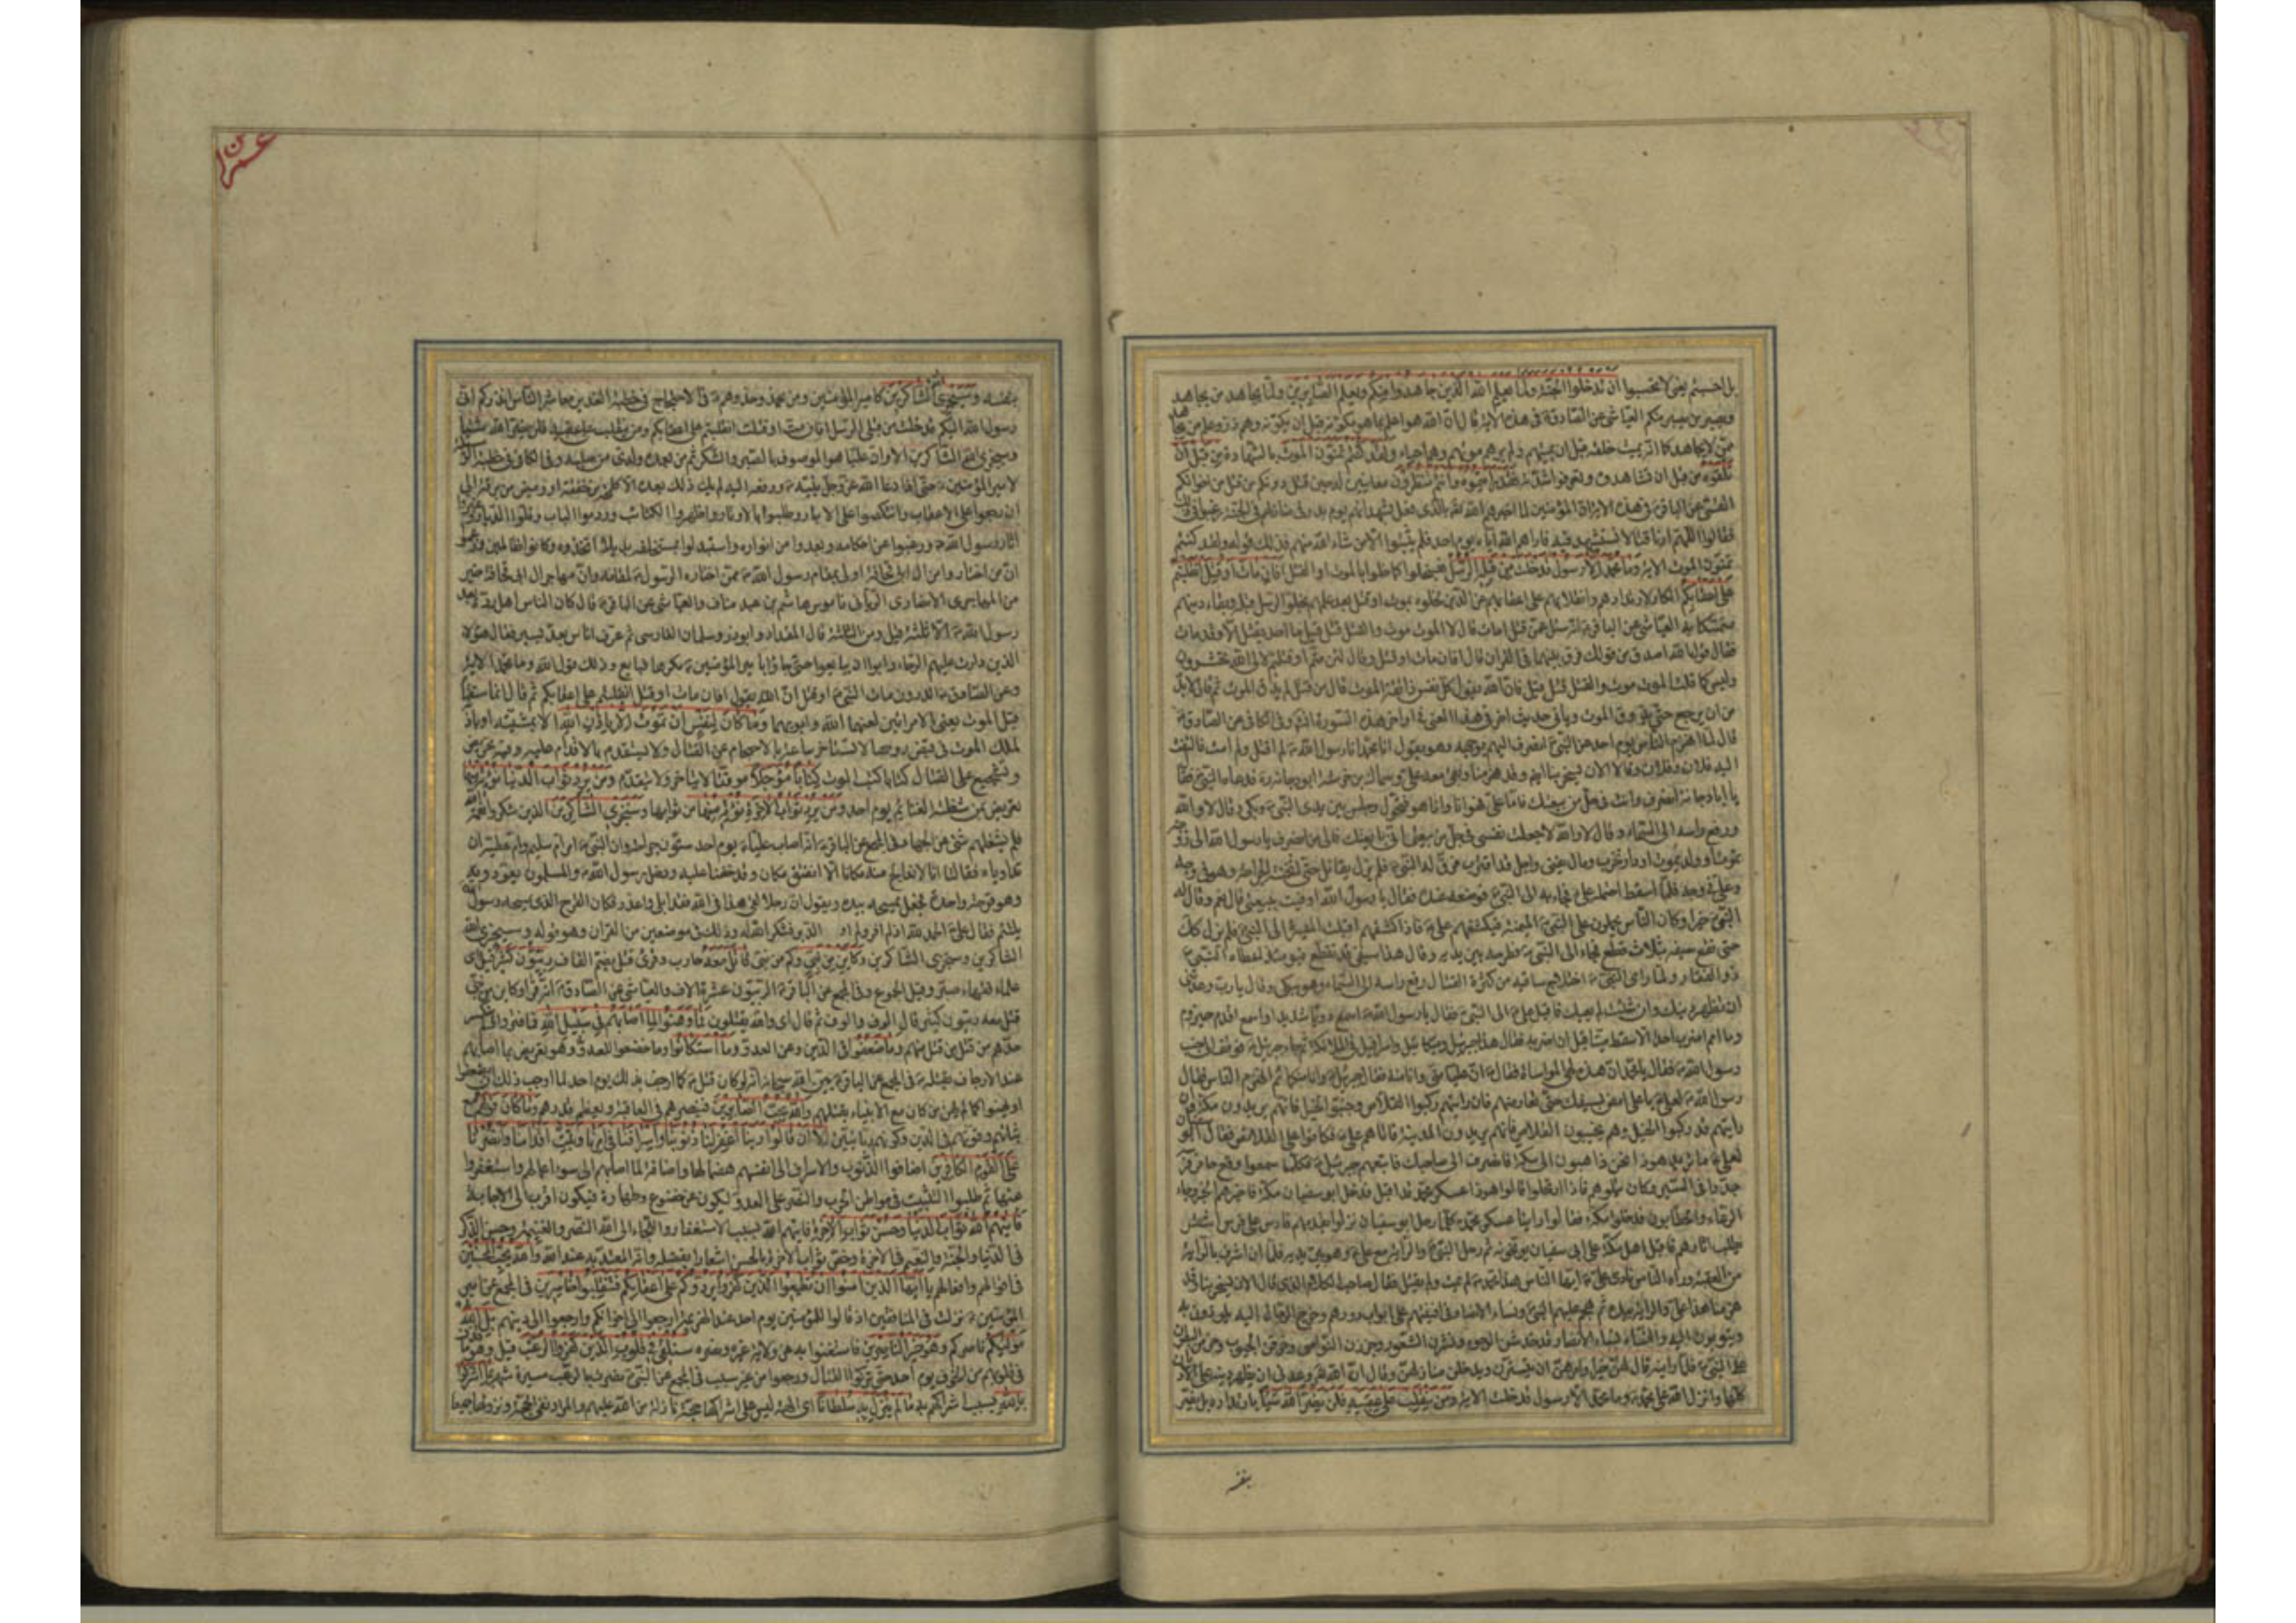 بل احسبتم يعني لا تحسبوا ان تدخلوا الجنة ولما يعلم الله الذين جاهدوا منكم ويعلم الصابرين ولما يجاهد من يجاهد
ويصبر من يصبر منكم العياشي عن الصادق ع في هذه الاية قال ان الله هو اعلم بما هو مكونه قبل ان يكونه وهم ذر وعلم من يجاهد
ممن لا يجاهد كما انه يميت خلقه قبل ان يميتهم ولم يرهم موتهم وهم احياء ولقد كنتم تمنون الموت بالشهادة من قبل ان
تلقوه من قبل ان تشاهدوه وتعرفوا شدته فقد رايتموه وانتم تنظرون معاينين له حين قتل دونكم من قتل من اخوانكم
القمي عن الباقر ع في هذه الاية ان المؤمنين لما اخبرهم الله تع بالذي فعل بشهدائهم يوم بدر في منازلهم في الجنة رغبوا في ذلك
فقالوا اللهم ارنا قتالا نستشهد فيه فاراهم الله اياه يوم احد فلم يثبتوا الا من شاء الله منهم فذلك قوله ولقد كنتم
تمنون الموت الاية وما محمد الا رسول قد خلت من قبله الرسل فسيخلوا كما خلوا بالموت او القتل افان مات او قتل انقلبتم
على اعقابكم انكار لارتدادهم وانقلابهم على اعقابهم عن الدين لخلوه بموت او قتل بعد علمهم بخلو الرسل قبله وبقاء دينهم
متمسكا به العياشي عن الباقر ع انه سئل عمن قتل امات قال لا الموت موت والقتل قتل قيل ما احد يقتل الا وقد مات
فقال قول الله اصدق من قولك فرق بينهما في القران قال افان مات او قتل وقال لئن متم او قتلتم لالى الله تحشرون
وليس كما قلت الموت موت والقتل قتل قيل فان الله يقول كل نفس ذائقة الموت قال من قتل لم يذق الموت ثم قال لا بد
من ان يرجع حتى يذوق الموت وياتي حديث اخر في هذا المعنى في اواخر هذه السورة انش وفي الكافي عن الصادق ع
قال لما انهزم الناس يوم احد عن النبي ص انصرف اليهم بوجهه وهو يقول انا محمد انا رسول الله ص لم اقتل ولم امت فالتفت
اليه فلان وفلان وقالا الان يسخر بنا ايضا وقد هزمنا وبقي معه علي ع وسماك بن خرشة ابو دجانة ره فدعاه النبي ص فقال
يا ابا دجانة انصرف وانت في حل من بيعتك فاما علي فهو انا وانا هو فتحول وجلس بين يدي النبي ص وبكى وقال لا والله
ورفع راسه الى السماء وقال لا والله لا جعلت نفسي في حل من بيعتي اني بايعتك فالى من انصرف يا رسول الله الى زوجة
تموت او ولد يموت او دار تخرب ومال يفنى واجل قد اقترب فرق له النبي ص فلم يزل يقاتل حتى اثخنته الجراحة وهو في وجه
وعلي ع في وجه فلما اسقط احتمله علي ع فجاء به الى النبي ص فوضعه عنده فقال يا رسول الله اوفيت ببيعتي قال نعم وقال له
النبي ص خيرا وكان الناس يحملون على النبي ص الميمنة فيكشفهم علي ع فاذا كشفهم اقبلت الميسرة الى النبي ص فلم يزل كذلك
حتى تقطع سيفه بثلاث قطع فجاء الى النبي ص فطرحه بين يديه وقال هذا سيفي قد تقطع فيومئذ اعطاه النبي ص
ذو الفقار ولما راى النبي ص اختلاج ساقيه من كثرة القتال رفع راسه الى السماء وهو يبكي وقال يا رب وعدتني
ان تظهر دينك وان شئت لم يعيك فاقبل علي ع الى النبي ص فقال يا رسول الله ص اسمع دويا شديدا واسمع اقدم حيزوم
وما اهم اضرب احدا الا سقط ميتا قبل ان اضربه فقال هذا جبرئيل وميكائيل واسرافيل في الملائكة ثم جاء جبرئيل ع فوقف الى جنب
رسول الله ص فقال يا محمد ان هذه لهي المواساة فقال ص ان عليا مني وانا منه فقال جبرئيل ع وانا منكما ثم انهزم الناس فقال
رسول الله ص لعلي ع يا علي امض بسيفك حتى تعارضهم فان رايتهم ركبوا القلاص وجنبوا الخيل فانهم يريدون مكة وان
رايتهم قد ركبوا الخيل وهم يجنبون القلاص فانهم يريدون المدينة فاتاهم علي ع فكانوا على القلاص فقال ابو سفيان
لعلي ع ما تريد هوذا نحن ذاهبون الى مكة فانصرف الى صاحبك فاتبعهم جبرئيل ع فكلما سمعوا وقع حافر فرسه
جدوا في السير وكان يتلوهم فاذا ارتحلوا قالوا هوذا عسكر محمد قد اقبل فدخل ابو سفيان مكة فاخبرهم الخبر وجاء
الرعاة والحطابون فدخلوا مكة فقالوا راينا عسكر محمد كلما رحل ابو سفيان نزلوا يقدمهم فارس على فرس اشقر
يطلب اثارهم فاقبل اهل مكة على ابي سفيان يوبخونه ثم رحل النبي ص والراية مع علي ع وهو بين يديه فلما ان اشرف بالراية
من العقبة وراه الناس نادى علي ع ايها الناس هذا محمد ص لم يمت ولم يقتل فقال صاحب الكلام الذي قال الان يسخر بنا وقد
هزمنا هذا علي والراية بيده ثم هجم عليهم النبي ص ونساء الانصار في افنيتهم على ابواب دورهم وخرج الرجال اليه يلوذون به
ويتوبون اليه والنساء نساء الانصار قد خدشن الوجوه ونشرن الشعور وجززن النواصي وخرقن الجيوب وحزمن البطون
على النبي ص فلما راينه قال لهن خيرا وامرهن ان يستترن ويدخلن منازلهن وقال ان الله عز وعدني ان يظهر دينه على الاديان
كلها وانزل الله على محمد ص وما محمد الا رسول قد خلت الاية ومن ينقلب على عقبيه فلن يضر الله شيئا بارتداده بل يضر
بنفسه
عمرن
بنفسه وسيجزي الله الشاكرين كامير المؤمنين ومن يحذو حذوهم ع في الاحتجاج في خطبة الغدير معاشر الناس انذركم اني
رسول الله اليكم قد خلت من قبلي الرسل افان مت او قتلت انقلبتم على اعقابكم ومن ينقلب على عقبيه فلن يضر الله شيئا
وسيجزي الله الشاكرين الا وان عليا هو الموصوف بالصبر والشكر ثم من بعده ولدي من صلبه وفي الكافي في خطبة الوسيلة
لامير المؤمنين ع حتى اذا دعا الله عز وجل نبيه ص ورفعه اليه لم يك ذلك بعده الا كلمحة من خفقة او وميض من برقة الى
ان رجعوا على الاعقاب وانتكصوا على الادبار وطلبوا بالاوتار واظهروا الكتائب وردموا الباب وفلوا الديار وغيروا
اثار رسول الله ص ورغبوا عن احكامه وبعدوا من انواره واستبدلوا بمستخلفه بديلا اتخذوه وكانوا ظالمين وزعموا
ان من اختاروا من ال ابي قحافة اولى بمقام رسول الله ص ممن اختاره الرسول ص لمقامه وان مهاجر ال ابي قحافة خير
من المهاجري الانصاري الرباني ناموس هاشم بن عبد مناف والعياشي عن الباقر ع قال كان الناس اهل ردة بعد
رسول الله ص الا ثلثة قيل ومن الثلثة قال المقداد وابو ذر وسلمان الفارسي ثم عرف اناس بعد يسير فقال هؤلاء
الذين دارت عليهم الرحاء وابوا ان يبايعوا حتى جاؤا بامير المؤمنين ع مكرها فبايع وذلك قول الله وما محمد الاية
وعن الصادق ع اتدرون مات النبي ص او قتل ان الله يقول افان مات او قتل انقلبتم على اعقابكم ثم قال انهما سقتاه
قبل الموت يعني الامراتين لعنهما الله وابويهما وما كان لنفس ان تموت الا باذن الله الا بمشيته او باذنه
لملك الموت في قبض روحها لا تستاخر ساعة بالاحجام عن القتال ولا تستقدم بالاقدام عليه وفيه تحريض
وتشجيع على القتال كتابا كتب الموت كتابا مؤجلا موقتا لا يتاخر ولا يتقدم ومن يرد ثواب الدنيا نؤته منها
تعريض بمن شغلته الغنائم يوم احد ومن يرد ثواب الاخرة نؤته منها من ثوابها وسنجزي الشاكرين الذين شكروا نعمة الله
فلم يشغلهم شيء عن الجهاد في المجمع عن الباقر ع انه اصاب عليا ع يوم احد ستون جراحة وان النبي ص امر ام سليم وام عطية ان
تداوياه فقالتا انا لا نعالج منه مكانا الا انفتق مكان وقد خفنا عليه ودخل رسول الله ص والمسلمون يعودونه
وهو قرحة واحدة فجعل يمسحه بيده ويقول ان رجلا لقي هذا في الله فقد ابلى واعذر فكان القرح الذي يمسحه رسول الله
يلتئم فقال علي ع الحمد لله اذ لم افر ولم اول الدبر فشكر الله له ذلك في موضعين من القران وهو قوله وسيجزي الله
الشاكرين وسنجزي الشاكرين وكاين من نبي وكم من نبي قاتل معه حارب وقرئ قتل بضم القاف ربيون كثير قيل اي
علماء فقهاء صبر وقيل الجموع وفي المجمع عن الباقر ع الربيون عشرة الاف والعياشي عن الصادق ع انه قرا وكاين من نبي
قتل معه ربيون كثير قال الوف والوف ثم قال اي والله يقتلون فما وهنوا لما اصابهم في سبيل الله
حدهم من قتل من قتل منهم وما ضعفوا في الدين وعن العدو وما استكانوا وما خضعوا للعدو وهو تعريض بما اصابهم
عند الارجاف بقتله ص في المجمع عن الباقر ع بين الله سبحانه انه لو كان قتل ص كما ارجف بذلك يوم احد لما اوجب ذلك ان يضعفوا
او يهنوا كما لم يهن من كان مع الانبياء بقتلهم والله يحب الصابرين فينصرهم في العاقبة ويعظم قدرهم وما كان قولهم مع
ثباتهم وقوتهم في الدين وكونهم ربانيين الا ان قالوا ربنا اغفر لنا ذنوبنا واسرافنا في امرنا وثبت اقدامنا وانصرنا
على القوم الكافرين اضافوا الذنوب والاسراف الى انفسهم هضما لها واضافة لما اصابهم الى سوء اعمالهم واستغفروا
عنها ثم طلبوا التثبيت في مواطن الحرب والنصر على العدو ليكون عن خضوع وطهارة فيكون اقرب الى الاجابة
فاتيهم الله ثواب الدنيا وحسن ثواب الاخرة فاتيهم الله بسبب الاستغفار والتجاء الى الله النصر والغنيمة وحسن الذكر
في الدنيا والجنة والنعيم في الاخرة وخص ثواب الاخرة بالحسن اشعارا بفضله وانه المعتد به عند الله والله يحب المحسنين
في اقوالهم وافعالهم يا ايها الذين امنوا ان تطيعوا الذين كفروا يردوكم على اعقابكم فتنقلبوا خاسرين في المجمع عن امير
المؤمنين ع نزلت في المنافقين اذ قالوا للمؤمنين يوم احد عند الهزيمة ارجعوا الى اخوانكم وارجعوا الى دينهم بل الله
موليكم ناصركم وهو خير الناصرين فاستغنوا به عن ولاية غيره ونصره سنلقي في قلوب الذين كفروا الرعب قيل وهو ما قذف
في قلوبهم من الخوف يوم احد حتى تركوا القتال ورجعوا من غير سبب في المجمع عن النبي ص نصرت بالرعب مسيرة شهر بما اشركوا
بالله بسبب اشراكهم به ما لم ينزل به سلطانا اي الهة ليس على اشراكها حجة نازلة من الله عليهم والمراد نفي الحجة ونزولها جميعا